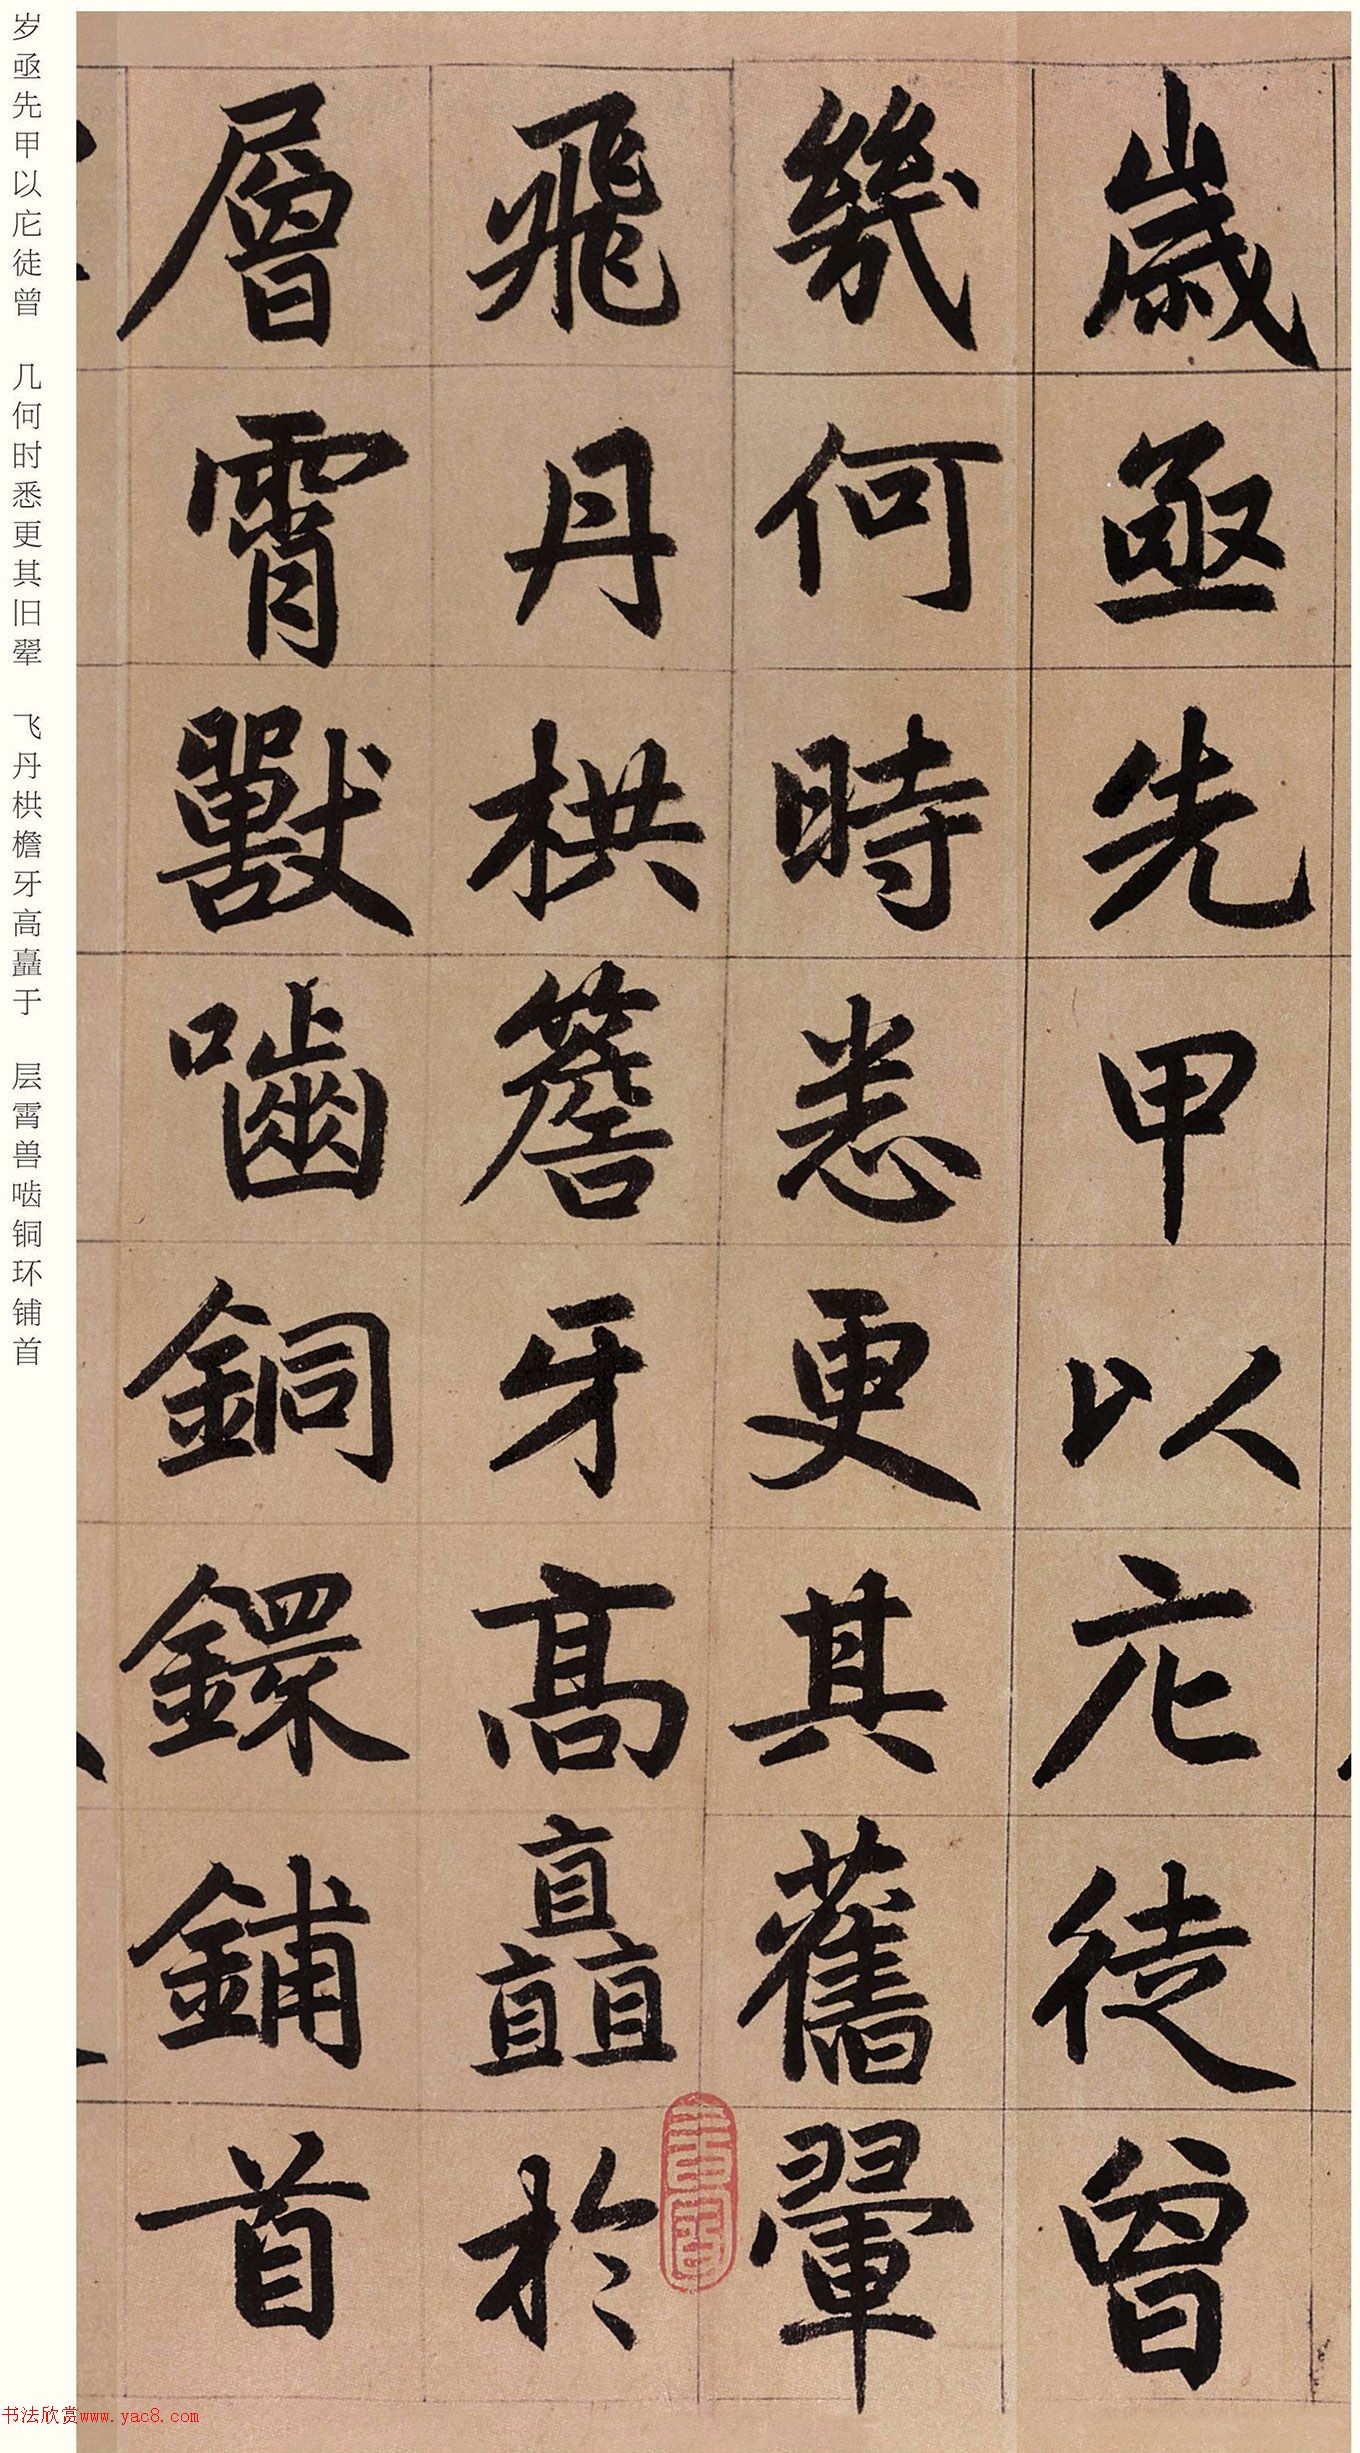 歲亟先甲以庀徒曾
幾何時悉更其舊翬
飛丹栱簷牙高矗於
層霄獸嚙銅鐶鋪首
岁亟先甲以庀徒曾 几何时悉更其旧翚 飞丹栱檐牙高矗于 层霄兽啮铜环铺首
书法欣赏www.yac8.com